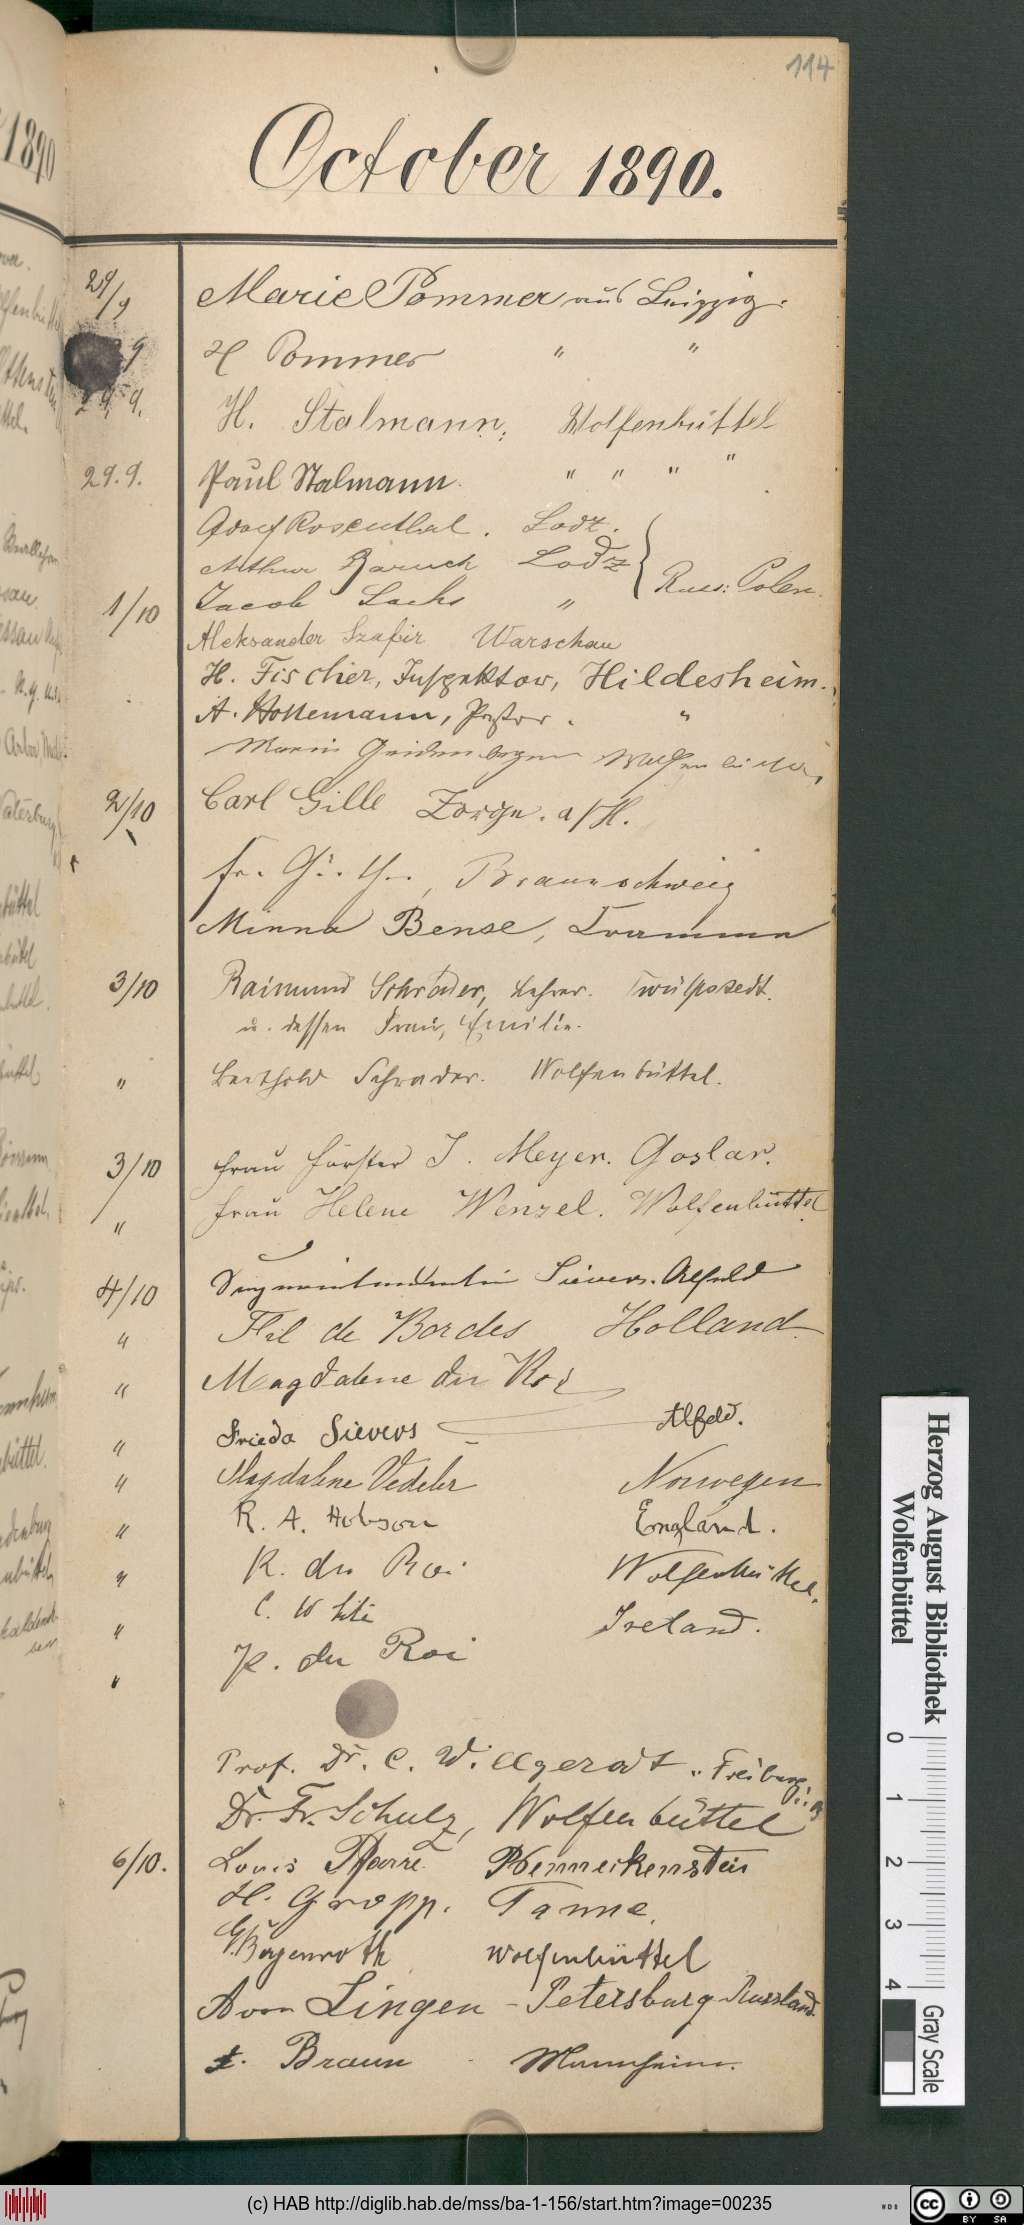 114
October 1890.
29/9 Marie Pommer aus Leipzig.
9 H Pommer " "
29. 9. H. Stalmann, Wolfenbüttel
29. 9. Paul Stalmann. " " " "
Adolf Rosenthal. Lodz.
Arthur Baruch Lodz
Russ: Polen.
1/10 Jacob Sachs "
Aleksander Szafir Warschau
H. Fischer, Inspektor, Hildesheim.
A. Hottemann, Pastor. "
Marie Wolfenbüttel,
2/10 Carl Gille Zorge. a/H.
Fr. Braunschweig
Minna Bense,
3/10 Raimund Schrader, Lehrer. Twülpstedt.
u. dessen Frau, Emilie.
" Berthold Schrader. Wolfenbüttel.
3/10 Frau Förster J. Meyer. Goslar.
" Frau Helene Wenzel. Wolfenbüttel
4/10 Superintendentin Sievers. Alfeld
" de Bordes Holland.
" Magdalene du Roi
" Frieda Sievers Alfeld.
" Magdalene Vedeler Norwegen
" R. A. Hobson England.
" R. du Roi Wolfenbüttel.
" C. W Ireland.
" P. du Roi
Prof. Dr. C. Willgerodt, Freiburg i. B
Dr. Fr. Schulz, Wolfenbüttel
6/10. Louis Pfarre. Henneckenstein
H. Gropp. Tanne.
G. Bogenroth Wolfenbüttel
A von Lingen - Petersburg Russland.
Braun Mannheim.
Herzog August Bibliothek
Wolfenbüttel
0 1 2 3 4
Gray Scale
(c) HAB http://diglib.hab.de/mss/ba-1-156/start.htm?image=00235
WDB
cc BY SA